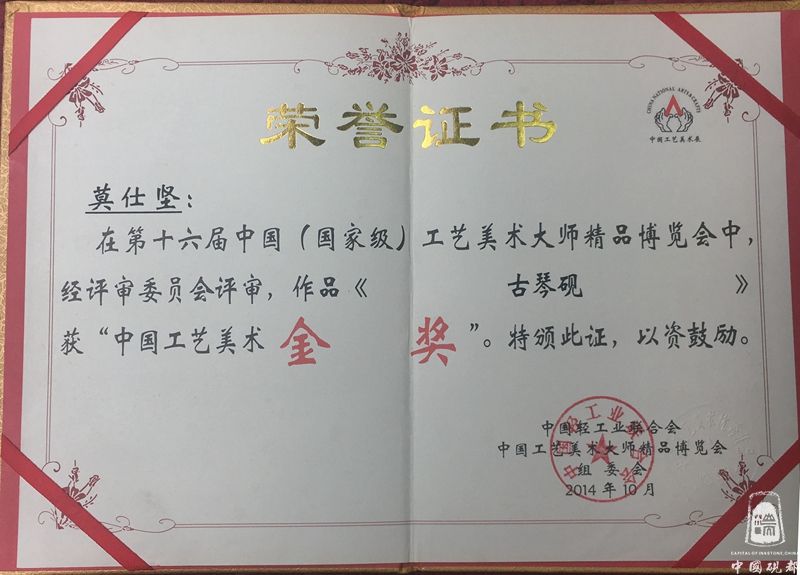 荣誉证书
CHINA NATIONAL ARTS & CRAFTS
中国工艺美术展
莫仕坚：
在第十六届中国（国家级）工艺美术大师精品博览会中，
经评审委员会评审，作品《 古琴砚 》
获“中国工艺美术 金 奖 ”。特颁此证，以资鼓励。
中国轻工业联合会
中国工艺美术大师精品博览会
组委会
2014年10月
CAPITAL OF INKSTONE, CHINA
中國硯都